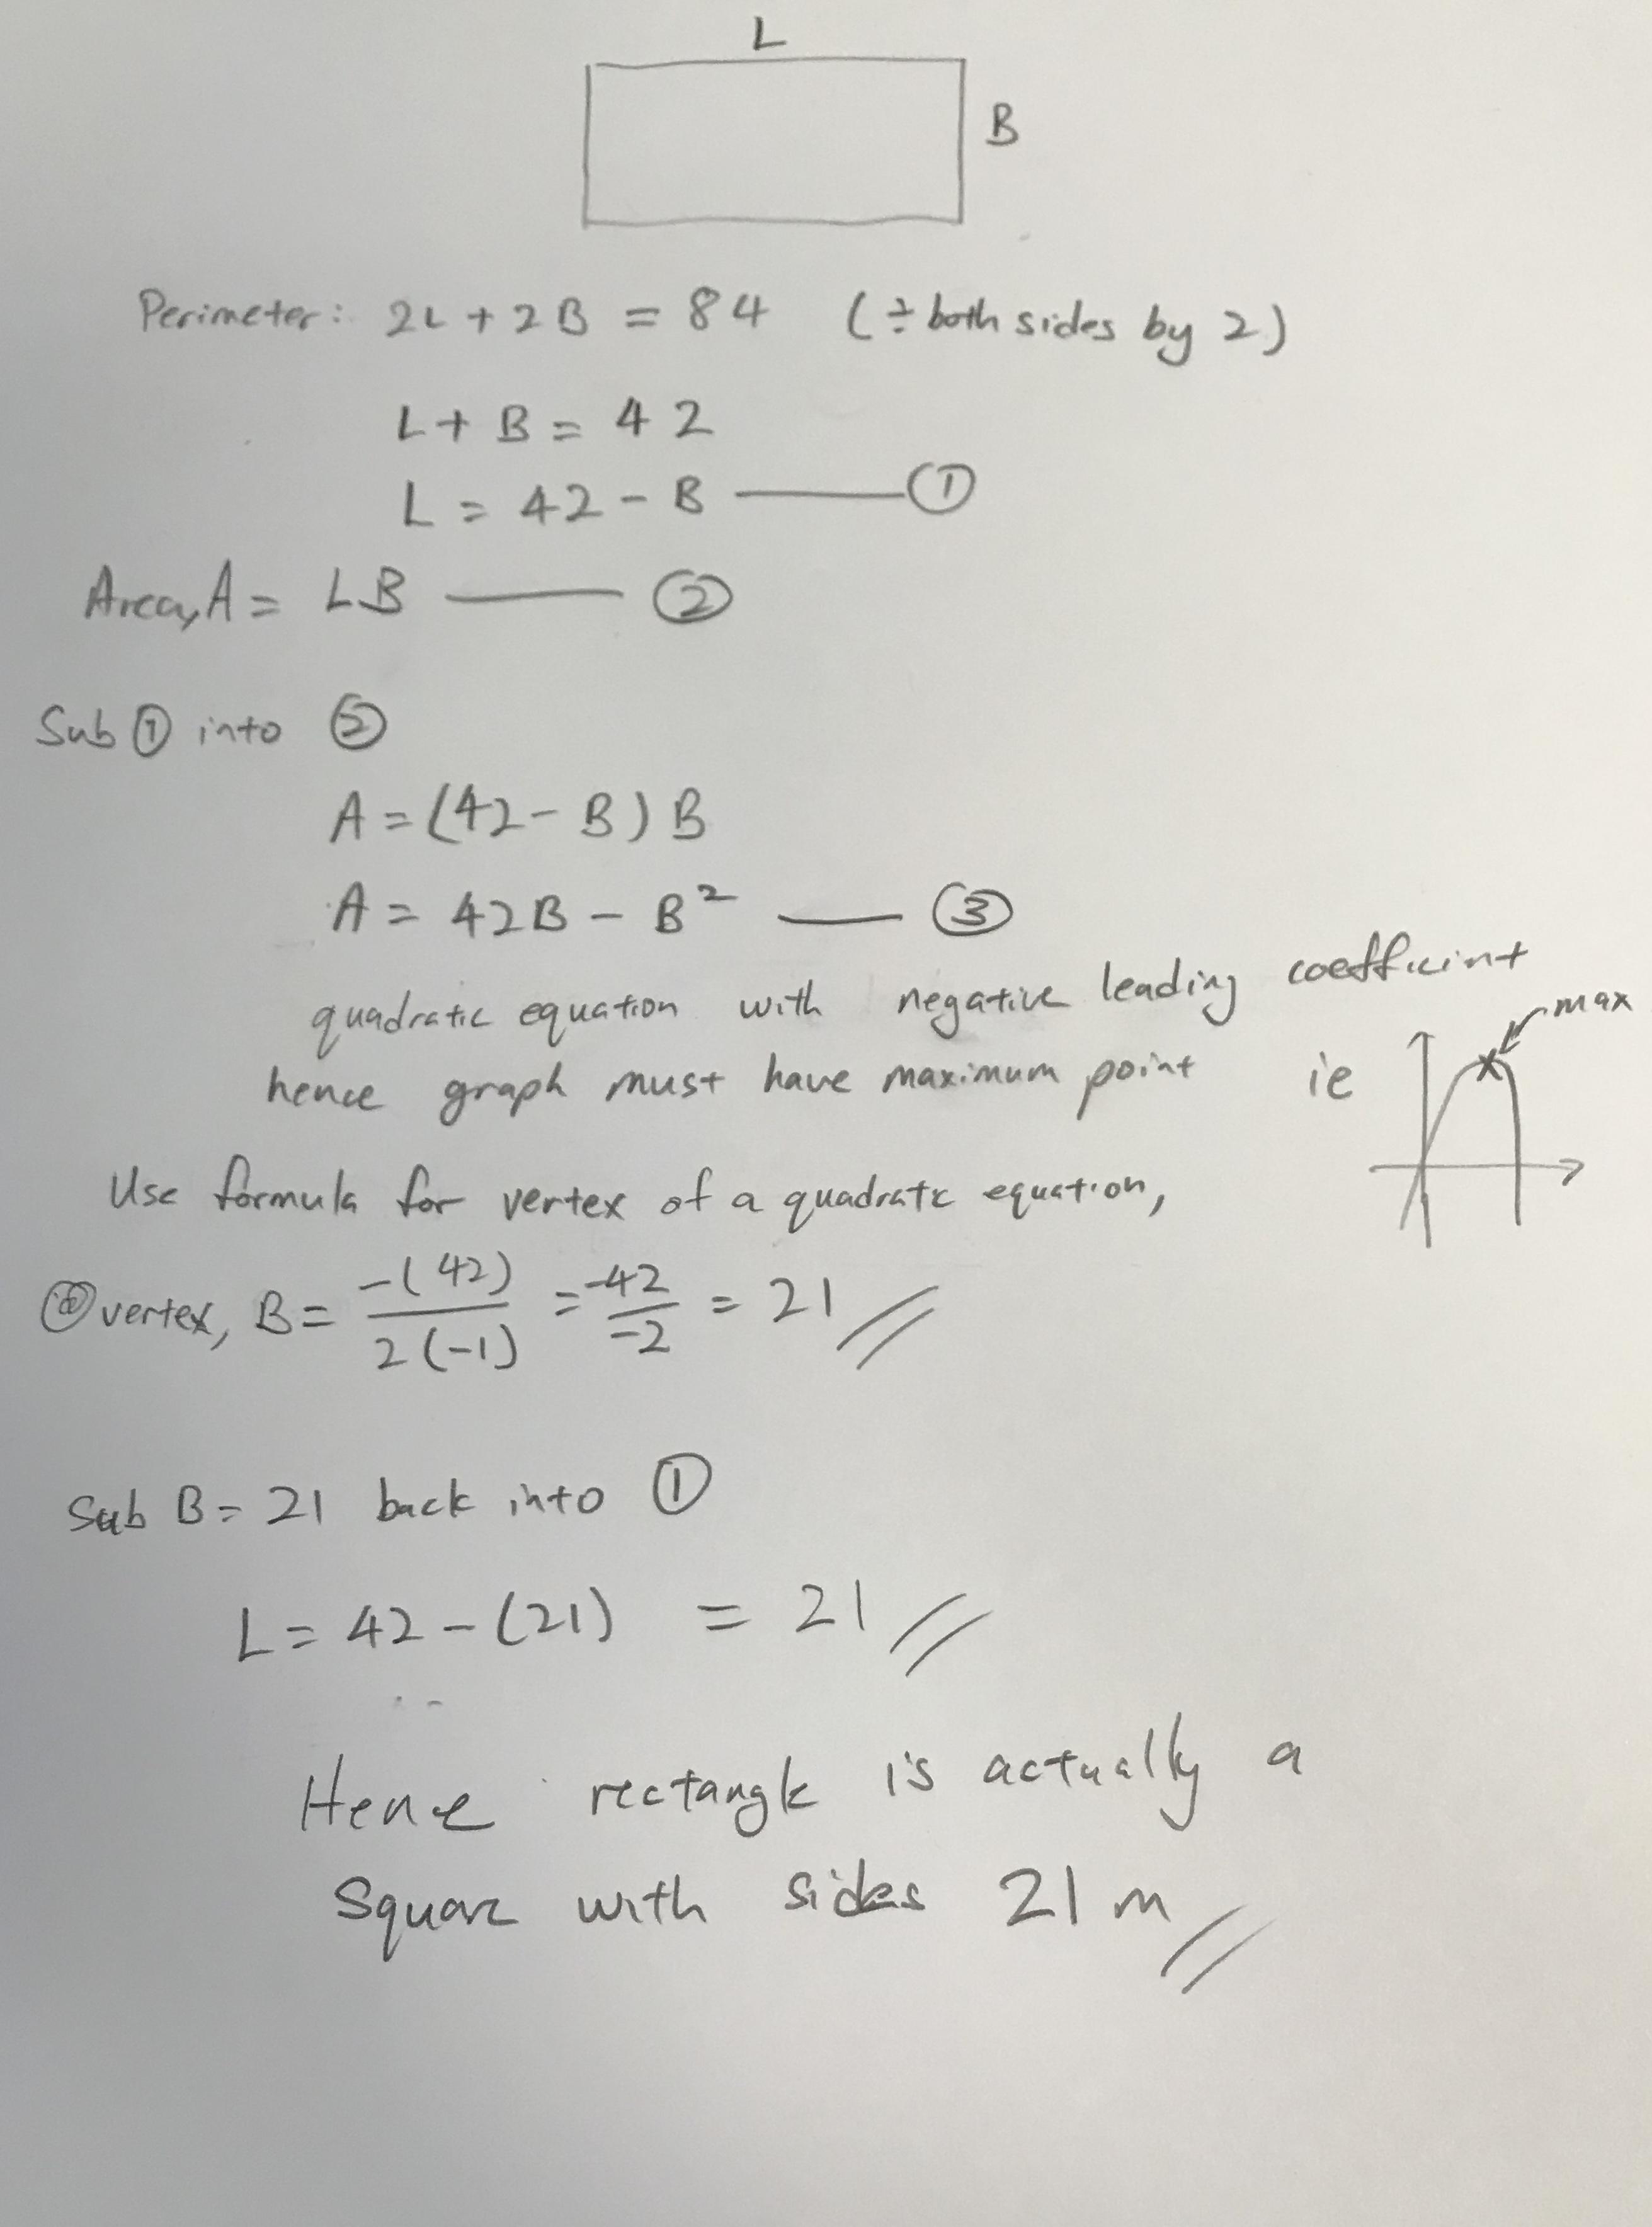 L
B
Perimeter: 2L + 2B = 84 (÷ both sides by 2)
L + B = 42
L = 42 - B —— ①
Area, A = LB —— ②
Sub ① into ②
A = (42 - B) B
A = 42B - B² —— ③
quadratic equation with negative leading coefficient
hence graph must have maximum point ie
max
Use formula for vertex of a quadratic equation,
@ vertex, B = -(42) / 2(-1) = -42 / -2 = 21 //
Sub B = 21 back into ①
L = 42 - (21) = 21 //
Hence rectangle is actually a
square with sides 21 m //